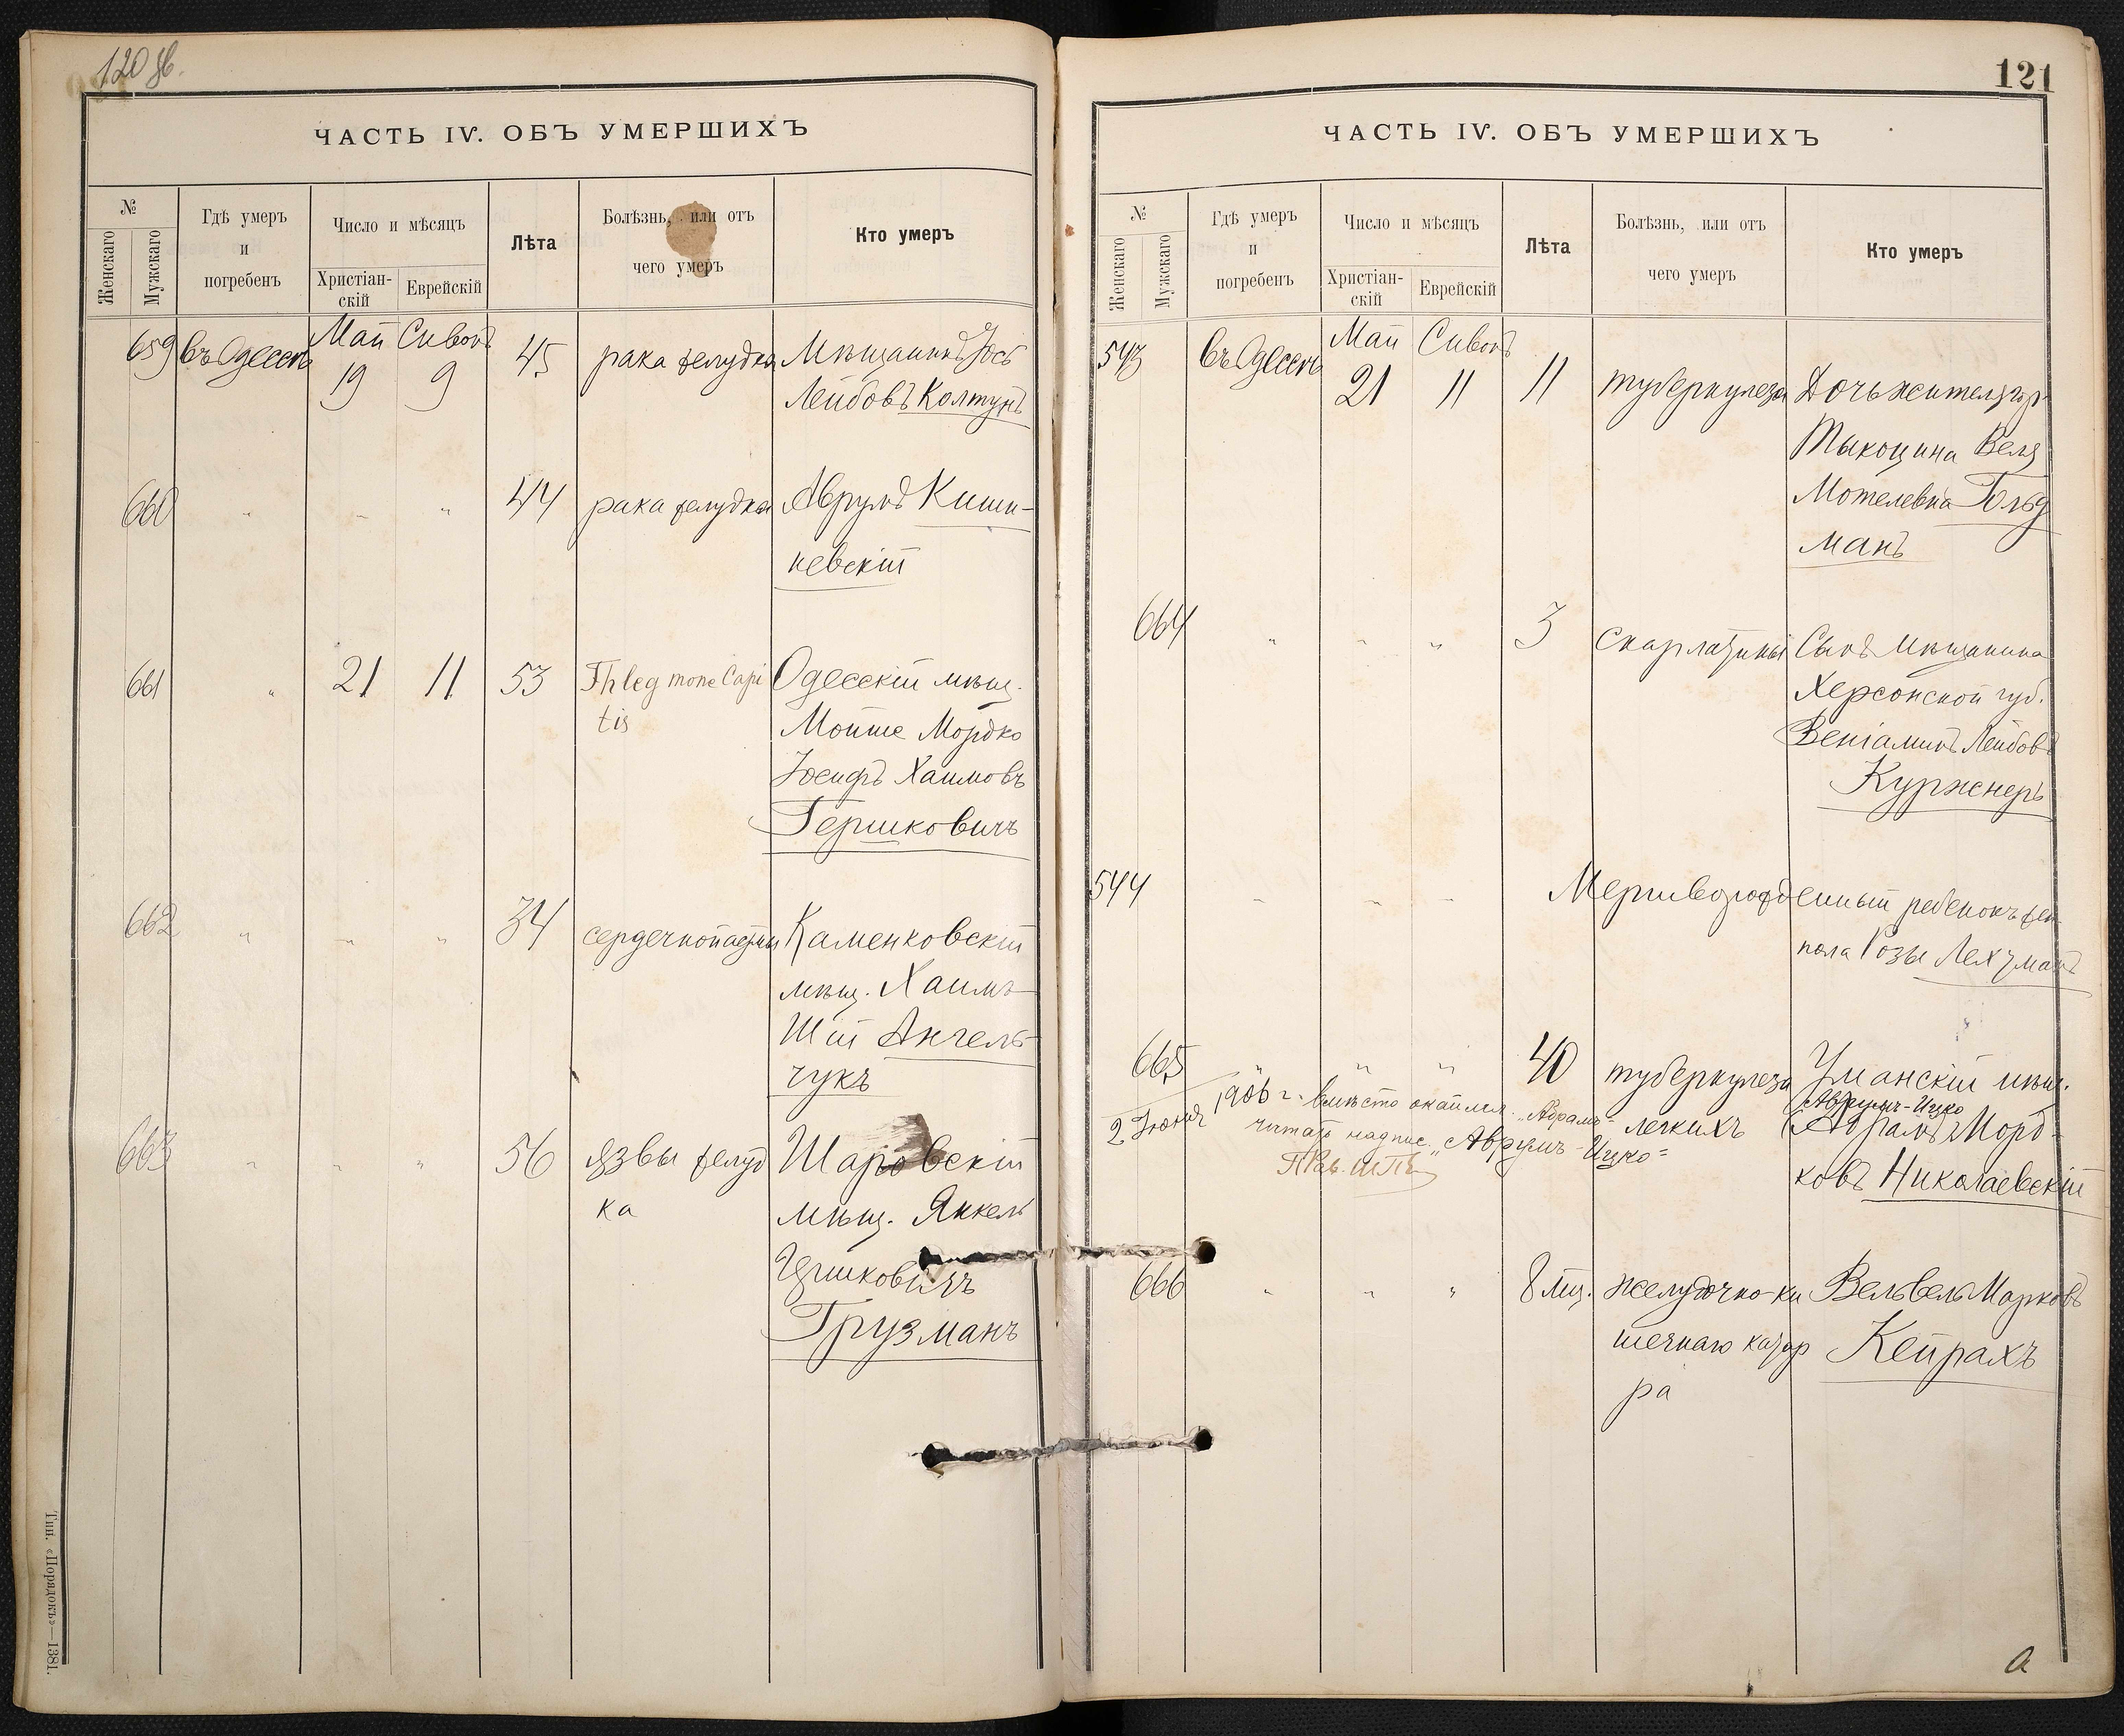 120 об.
ЧАСТЬ IV. ОБЪ УМЕРШИХЪ
№
Женскаго
Мужскаго
Гдѣ умеръ
и
погребенъ
Число и мѣсяцъ
Христіан-
скій
Еврейскій
Лѣта
Болѣзнь, или отъ
чего умеръ
Кто умеръ
659 въ Одессѣ Май 19 Сивонъ 9 45 рака желудка Мѣщанинъ Іось
Лейбовъ Колтунъ
660 " " " 44 рака желудка Аврумъ Киши-
невскій
661 " 21 11 53 Phlegmone Capi Одесскій мѣщ.
tis Мойше Мордко
Іосифъ Хаимовъ
Гершковичъ
662 " " " 34 сердечной астмы Каменковскій
мѣщ. Хаимъ
Шій Ангель
чукъ
663 " " " 56 язвы желуд Шаровскій
ка мѣщ. Янкель
Ицковичъ
Грузманъ
Тип. «Порядокъ»—1381.
121
ЧАСТЬ IV. ОБЪ УМЕРШИХЪ
№
Женскаго
Мужскаго
Гдѣ умеръ
и
погребенъ
Число и мѣсяцъ
Христіан-
скій
Еврейскій
Лѣта
Болѣзнь, или отъ
чего умеръ
Кто умеръ
543 въ Одессѣ Май 21 Сивонъ 11 11 туберкулеза Дочь жителя гор
Тыкоцина Веля
Мотелевна Гольд
манъ
664 " " " 3 скарлатины Сынъ мѣщанина
Херсонской губ.
Веніаминъ Лейбовъ
Куржнеръ
544 " " " Мертворожденный ребенокъ жен
пола Розы Лехтманъ
665 " " " 40 туберкулеза Уманскій мѣщ.
Аврумъ-Ицко
легкихъ (Абрамъ) Морд-
ковъ Николаевскій
2 Іюня 1906 г. вмѣсто окаймл. "Абрамъ"
читать надпис. "Аврумъ-Ицко"
666 " " " 8 мц. желудочно-ки Вельвель Марковъ
шечнаго катар Кейрахъ
ра